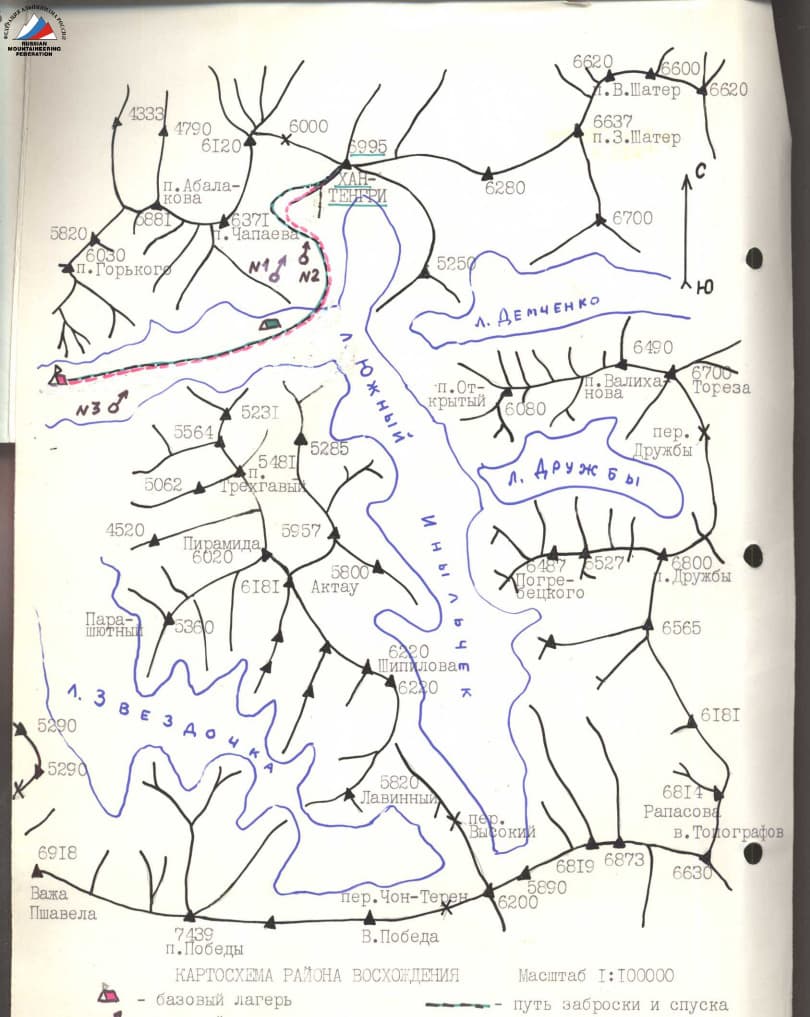 ФЕДЕРАЦИЯ АЛЬПИНИЗМА РОССИИ
RUSSIAN
MOUNTAINEERING
FEDERATION
6620
6600
6620
п.В.Шатер
4333
4790
6120
6000
6995
6637
п.З.Шатер
ХАН-
ТЕНГРИ
6280
С
п.Абала-
кова
5881
6371
п.Чапаева
6700
5820
6030
п.Горького
N1
N2
5250
Ю
л. Демченко
л. Южный
Иныльчек
6490
п.От-
крытый
6080
п.Валиха-
нова
6700
Тореза
N3
5231
5564
5285
пер.
Дружбы
5481
п.
Трехгавый
5062
л. Дружбы
4520
Пирамида
6020
5957
6181
Актау
5800
6487
Погре-
бецкого
6527
6800
п.Дружбы
Пара-
шютный
5360
6565
6220
Шипилова
6220
л. Звездочка
6181
5290
5290
5820
Лавинный
пер.
Высокий
6814
Рапасова
в.Топографов
6918
Важа
Пшавела
6819
6873
6630
5890
6200
пер.Чон-Терен
7439
п.Победы
В.Победа
КАРТОСХЕМА РАЙОНА ВОСХОЖДЕНИЯ Масштаб I:I00000
- базовый лагерь
- путь заброски и спуска